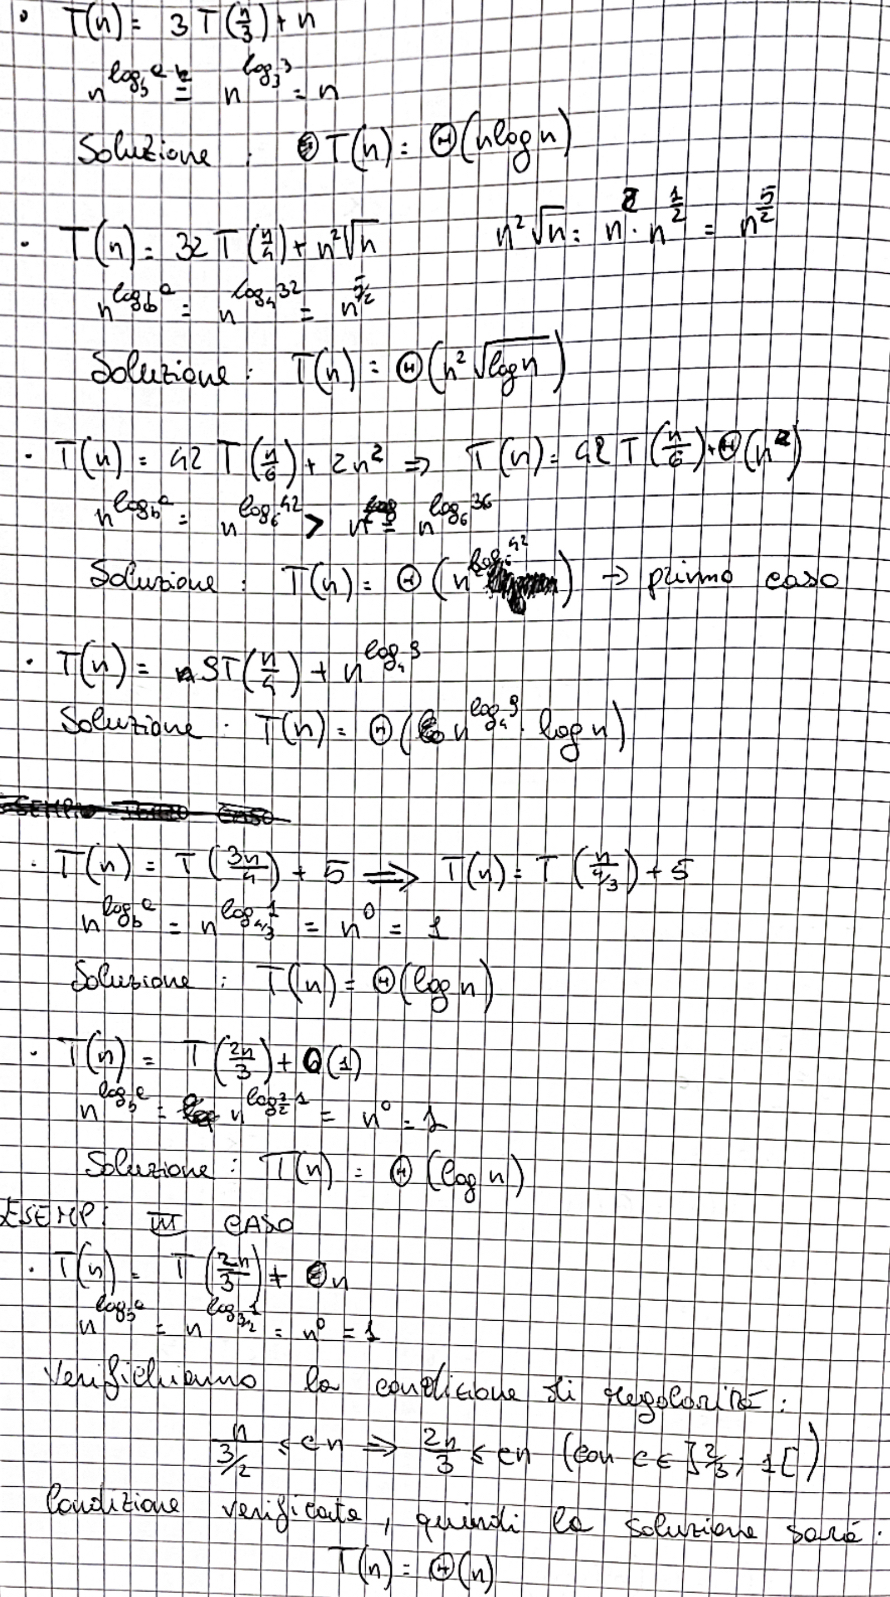 • T(n) = 3 T(n/3) + n
n^(log_b a) = n^(log_3 3) = n
Soluzione : T(n) = Θ(n log n)
• T(n) = 32 T(n/4) + n² √n    n² √n = n² · n^(1/2) = n^(5/2)
n^(log_b a) = n^(log_4 32) = n^(5/2)
Soluzione : T(n) = Θ(n² √log n)
• T(n) = 42 T(n/6) + 2n² ⇒ T(n) = 42 T(n/6) + Θ(n²)
n^(log_b a) = n^(log_6 42) > n^(log_6 36)
Soluzione : T(n) = Θ(n^(log_6 42)) → primo caso
• T(n) = 9T(n/4) + n^(log_4 9)
Soluzione : T(n) = Θ(n^(log_4 9) · log n)
• T(n) = T(3n/4) + 5 ⟹ T(n) = T(n/(4/3)) + 5
n^(log_b a) = n^(log_4/3 1) = n^0 = 1
Soluzione : T(n) = Θ(log n)
• T(n) = T(2n/3) + Θ(1)
n^(log_b a) = n^(log_3/2 1) = n^0 = 1
Soluzione : T(n) = Θ(log n)
ESEMPI III CASO
• T(n) = T(2n/3) + n
n^(log_b a) = n^(log_3/2 1) = n^0 = 1
Verifichiamo la condizione di regolarità :
n/(3/2) ≤ cn ⇒ 2n/3 ≤ cn (con c ∈ ]2/3; 1[)
Condizione verificata, quindi la soluzione sarà :
T(n) = Θ(n)